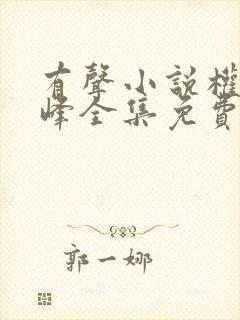 有聲小説權
峰全集免費
郭一娜